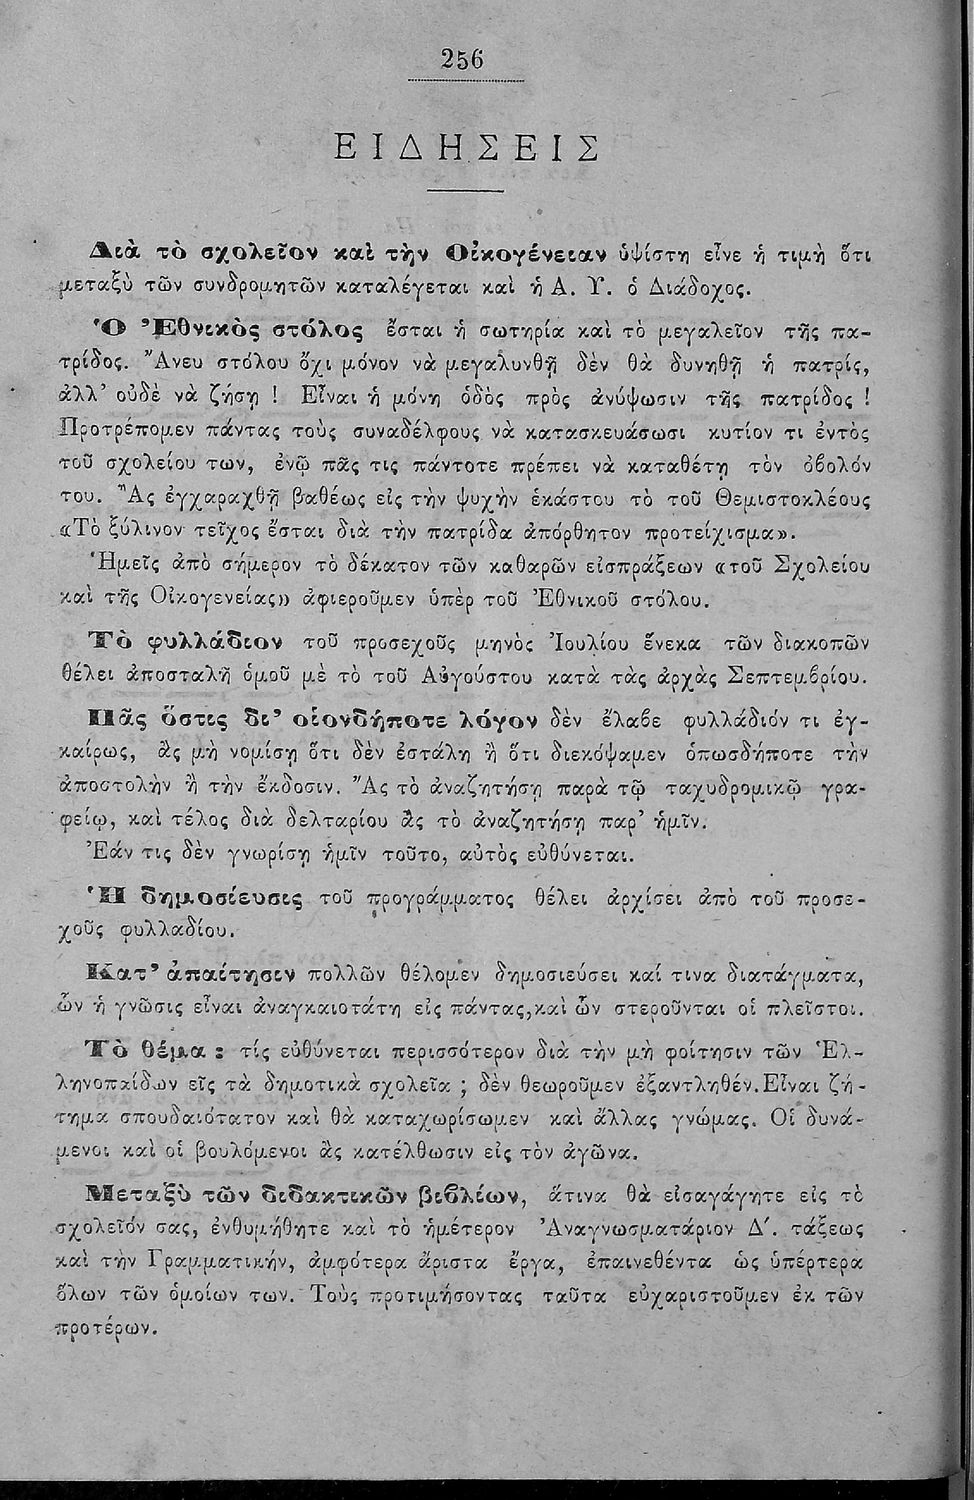 256
ΕΙΔΗΣΕΙΣ
Διὰ τὸ σχολεῖον καὶ τὴν Οἰκογένειαν ὑψίστη εἶνε ἡ τιμὴ ὅτι
μεταξὺ τῶν συνδρομητῶν καταλέγεται καὶ ἡ Α. Υ. ὁ Διάδοχος.
Ὁ Ἐθνικὸς στόλος ἔσται ἡ σωτηρία καὶ τὸ μεγαλεῖον τῆς πα-
τρίδος. Ἄνευ στόλου ὄχι μόνον νὰ μεγαλυνθῇ δὲν θὰ δυνηθῇ ἡ πατρίς,
ἀλλ' οὐδὲ νὰ ζήσῃ ! Εἶναι ἡ μόνη ὁδὸς πρὸς ἀνύψωσιν τῆς πατρίδος !
Προτρέπομεν πάντας τοὺς συναδέλφους νὰ κατασκευάσωσι κυτίον τι ἐντὸς
τοῦ σχολείου των, ἐνῷ πᾶς τις πάντοτε πρέπει νὰ καταθέτῃ τὸν ὀβολόν
του. Ἂς ἐγχαραχθῇ βαθέως εἰς τὴν ψυχὴν ἑκάστου τὸ τοῦ Θεμιστοκλέους
«Τὸ ξύλινον τεῖχος ἔσται διὰ τὴν πατρίδα ἀπόρθητον προτείχισμα».
Ἡμεῖς ἀπὸ σήμερον τὸ δέκατον τῶν καθαρῶν εἰσπράξεων «τοῦ Σχολείου
καὶ τῆς Οἰκογενείας» ἀφιεροῦμεν ὑπὲρ τοῦ Ἐθνικοῦ στόλου.
Τὸ φυλλάδιον τοῦ προσεχοῦς μηνὸς Ἰουλίου ἕνεκα τῶν διακοπῶν
θέλει ἀποσταλῆ ὁμοῦ μὲ τὸ τοῦ Αὐγούστου κατὰ τὰς ἀρχὰς Σεπτεμβρίου.
Πᾶς ὅστις δι' οἱονδήποτε λόγον δὲν ἔλαβε φυλλάδιόν τι ἐγ-
καίρως, ἂς μὴ νομίσῃ ὅτι δὲν ἐστάλη ἢ ὅτι διεκόψαμεν ὁπωσδήποτε τὴν
ἀποστολὴν ἢ τὴν ἔκδοσιν. Ἂς τὸ ἀναζητήσῃ παρὰ τῷ ταχυδρομικῷ γρα-
φείῳ, καὶ τέλος διὰ δελταρίου ἂς τὸ ἀναζητήσῃ παρ' ἡμῖν.
Ἐάν τις δὲν γνωρίσῃ ἡμῖν τοῦτο, αὐτὸς εὐθύνεται.
Ἡ δημοσίευσις τοῦ προγράμματος θέλει ἀρχίσει ἀπὸ τοῦ προσε-
χοῦς φυλλαδίου.
Κατ' ἀπαίτησιν πολλῶν θέλομεν δημοσιεύσει καί τινα διατάγματα,
ὧν ἡ γνῶσις εἶναι ἀναγκαιοτάτη εἰς πάντας,καὶ ὧν στεροῦνται οἱ πλεῖστοι.
Τὸ θέμα : τίς εὐθύνεται περισσότερον διὰ τὴν μὴ φοίτησιν τῶν Ἑλ-
ληνοπαίδων εἰς τὰ δημοτικὰ σχολεῖα ; δὲν θεωροῦμεν ἐξαντληθέν.Εἶναι ζή-
τημα σπουδαιότατον καὶ θὰ καταχωρίσωμεν καὶ ἄλλας γνώμας. Οἱ δυνά-
μενοι καὶ οἱ βουλόμενοι ἂς κατέλθωσιν εἰς τὸν ἀγῶνα.
Μεταξὺ τῶν διδακτικῶν βιβλίων, ἅτινα θὰ εἰσαγάγητε εἰς τὸ
σχολεῖόν σας, ἐνθυμήθητε καὶ τὸ ἡμέτερον Ἀναγνωσματάριον Δ΄. τάξεως
καὶ τὴν Γραμματικήν, ἀμφότερα ἄριστα ἔργα, ἐπαινεθέντα ὡς ὑπέρτερα
ὅλων τῶν ὁμοίων των. Τοὺς προτιμήσοντας ταῦτα εὐχαριστοῦμεν ἐκ τῶν
προτέρων.